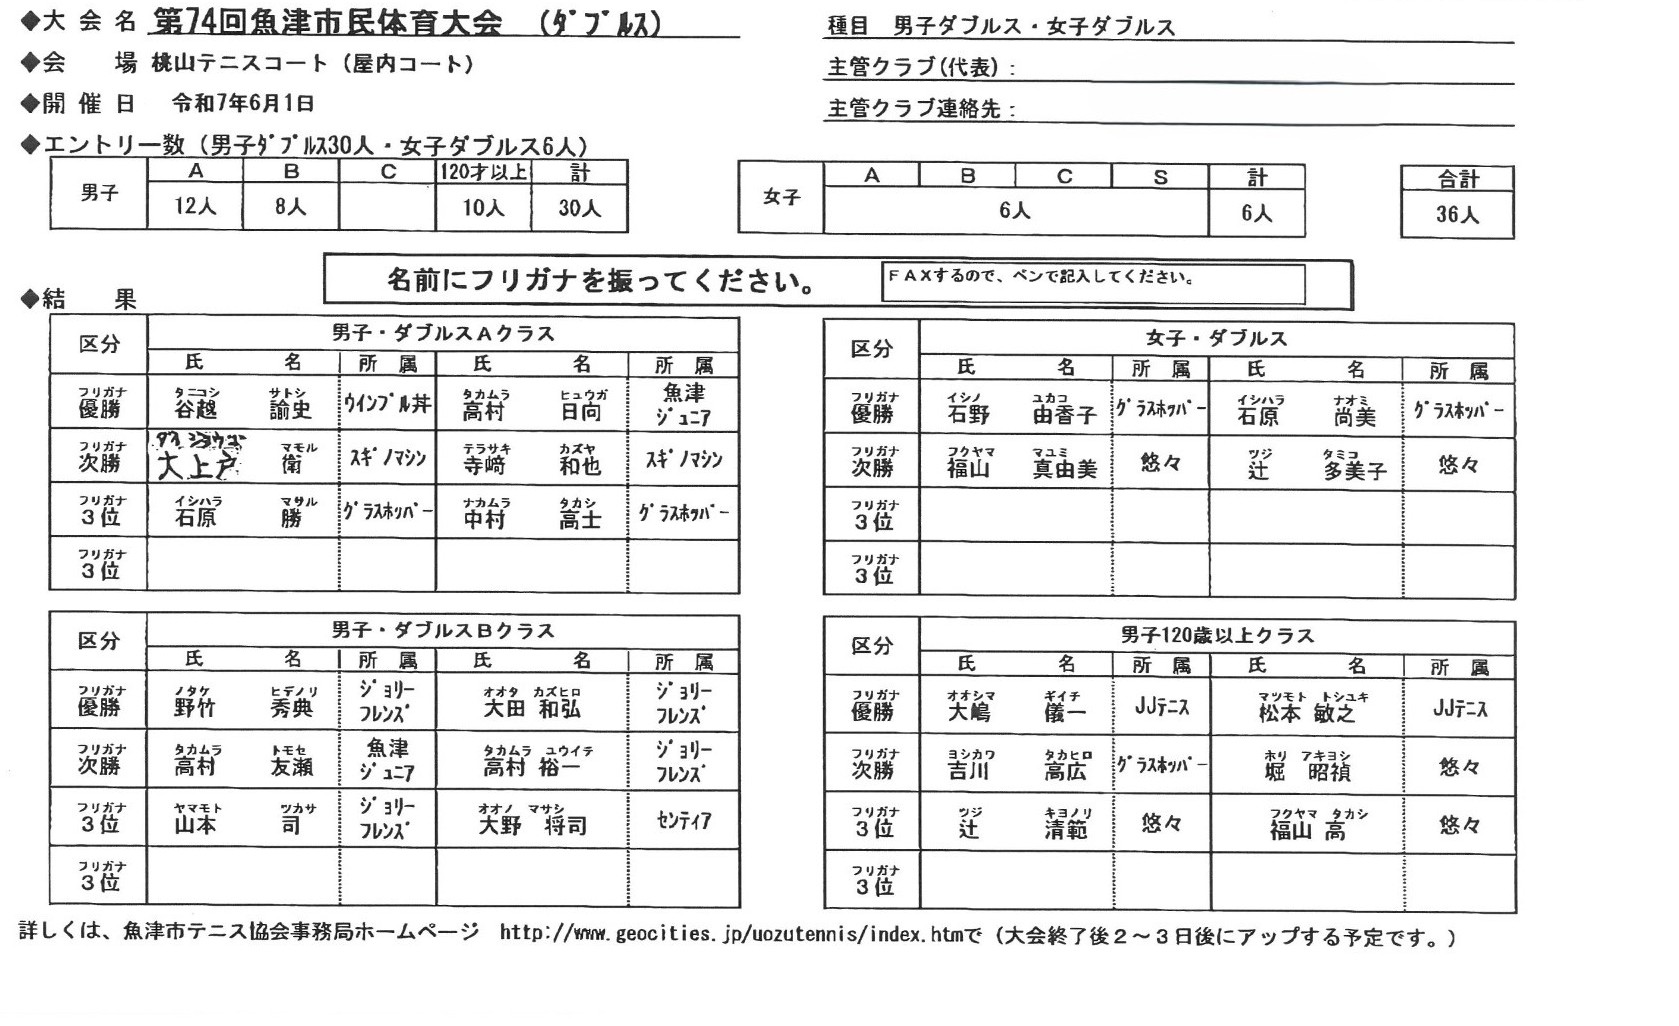 ◆大 会 名 第74回魚津市民体育大会 (ﾀﾞﾌﾞﾙｽ)
種目 男子ダブルス・女子ダブルス
◆会 場 桃山テニスコート（屋内コート）
主管クラブ(代表)：
◆開 催 日 令和7年6月1日
主管クラブ連絡先：
◆エントリー数（男子ﾀﾞﾌﾞﾙｽ30人・女子ダブルス6人）
男子 A B C 120才以上 計
12人 8人 10人 30人
女子 A B C S 計
6人 6人
合計
36人
名前にフリガナを振ってください。
ＦＡＸするので、ペンで記入してください。
◆結 果
区分 男子・ダブルスＡクラス
氏 名 所 属 氏 名 所 属
フリガナ タニコシ サトシ タカムラ ヒュウガ
優勝 谷越 諭史 ｳｲﾝﾌﾞﾙ丼 高村 日向 魚津ｼﾞｭﾆｱ
フリガナ マモル テラサキ カズヤ
次勝 大上戸 衛 ｽｷﾞﾉﾏｼﾝ 寺﨑 和也 ｽｷﾞﾉﾏｼﾝ
フリガナ イシハラ マサル ナカムラ タカシ
３位 石原 勝 ｸﾞﾗｽﾎｯﾊﾟｰ 中村 高士 ｸﾞﾗｽﾎｯﾊﾟｰ
フリガナ
３位
区分 女子・ダブルス
氏 名 所 属 氏 名 所 属
フリガナ イシノ ユカコ イシハラ ナオミ
優勝 石野 由香子 ｸﾞﾗｽﾎｯﾊﾟｰ 石原 尚美 ｸﾞﾗｽﾎｯﾊﾟｰ
フリガナ フクヤマ マユミ ツジ タミコ
次勝 福山 真由美 悠々 辻 多美子 悠々
フリガナ
３位
フリガナ
３位
区分 男子・ダブルスＢクラス
氏 名 所 属 氏 名 所 属
フリガナ ノタケ ヒデノリ オオタ カズヒロ
優勝 野竹 秀典 ｼﾞｮﾘｰﾌﾚﾝｽﾞ 大田 和弘 ｼﾞｮﾘｰﾌﾚﾝｽﾞ
フリガナ タカムラ トモセ タカムラ ユウイチ
次勝 高村 友瀬 魚津ｼﾞｭﾆｱ 高村 裕一 ｼﾞｮﾘｰﾌﾚﾝｽﾞ
フリガナ ヤマモト ツカサ オオノ マサシ
３位 山本 司 ｼﾞｮﾘｰﾌﾚﾝｽﾞ 大野 将司 ｾﾝﾃｨｱ
フリガナ
３位
区分 男子120歳以上クラス
氏 名 所 属 氏 名 所 属
フリガナ オオシマ ギイチ マツモト トシユキ
優勝 大嶋 儀一 JJﾃﾆｽ 松本 敏之 JJﾃﾆｽ
フリガナ ヨシカワ タカヒロ ホリ アキヨシ
次勝 吉川 高広 ｸﾞﾗｽﾎｯﾊﾟｰ 堀 昭禎 悠々
フリガナ ツジ キヨノリ フクヤマ タカシ
３位 辻 清範 悠々 福山 高 悠々
フリガナ
３位
詳しくは、魚津市テニス協会事務局ホームページ http://www.geocities.jp/uozutennis/index.htmで（大会終了後２～３日後にアップする予定です。）